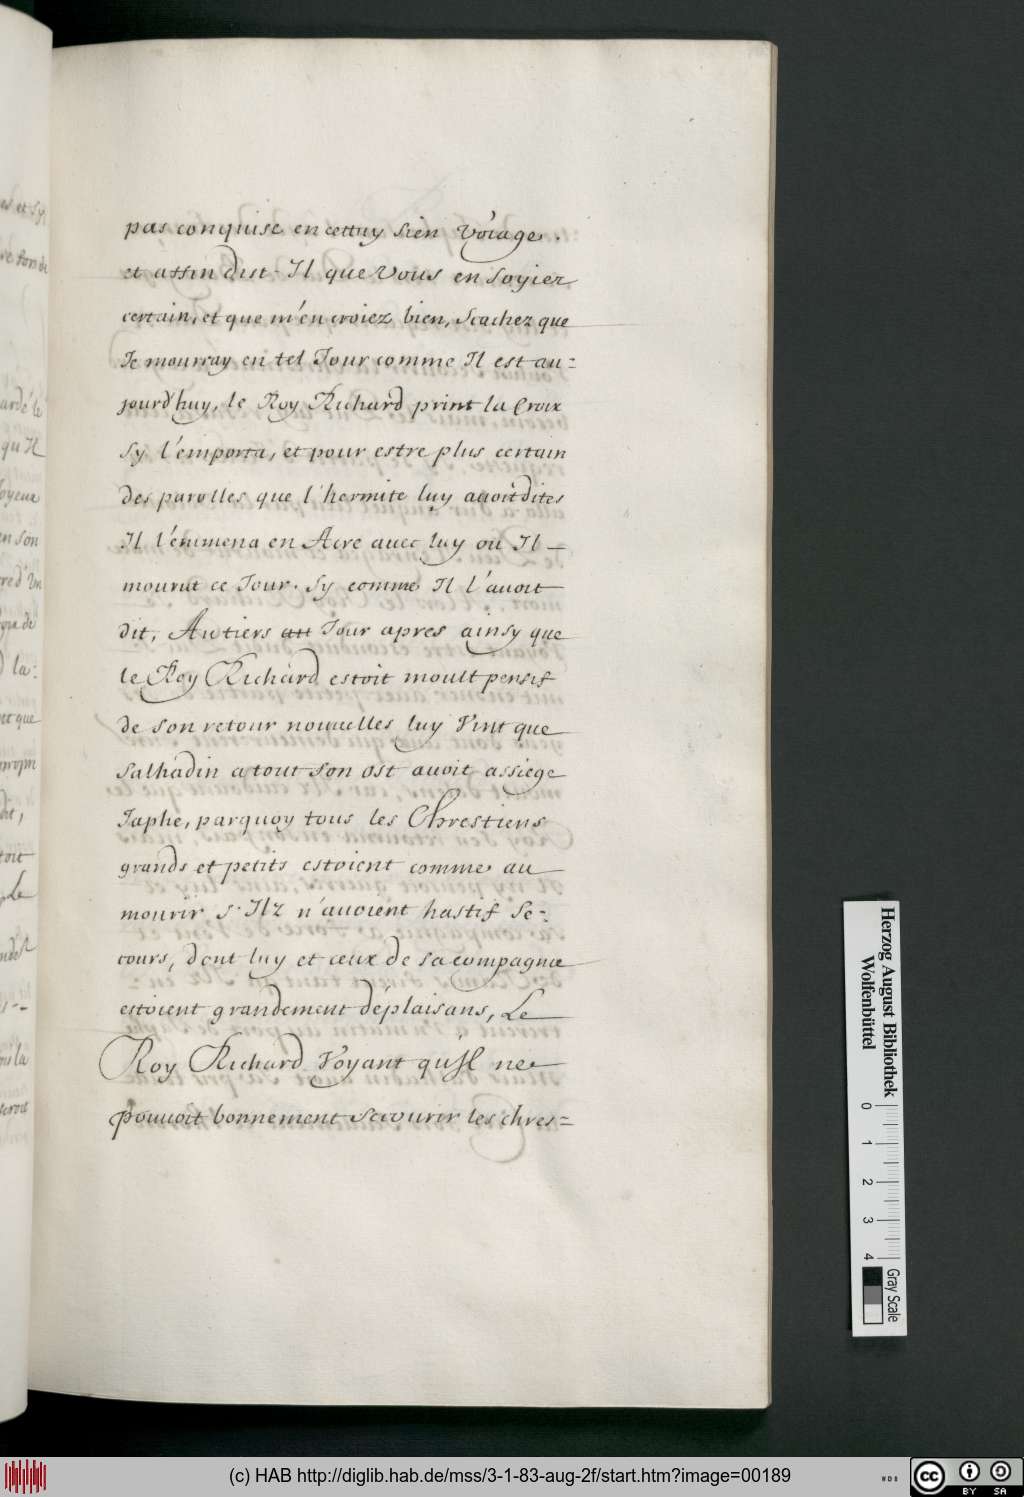 pas conquise en cettuy sien voiage.
et affin dist-Il que vous en soyiez
certain, et que m'en croiez bien, scachez que
Je mourray en tel Jour comme Il est au=
jourd'huy, le Roy Richard print la Croix
sy l'emporta, et pour estre plus certain
des parolles que l'hermite luy avoit dites
Il l'emmena en Acre avec luy ou Il
mourut ce Jour. Sy comme Il l'avoit
dit, Au tiers Jour apres ainsy que
le Roy Richard estoit moult pensif
de son retour nouvelles luy Vint que
Salhadin a tout son ost avoit assiege
Japhe, parquoy tous les Chrestiens
grands et petits estoient comme au
mourir s'Ilz n'avoient hastif Se=
cours, dont luy et ceux de sa compagnie
estoient grandement déplaisans, Le
Roy Richard Voyant qu'Il ne
pouvoit bonnement secourir les chres=
Herzog August Bibliothek
Wolfenbüttel
0 1 2 3 4
Gray Scale
(c) HAB http://diglib.hab.de/mss/3-1-83-aug-2f/start.htm?image=00189
cc BY SA